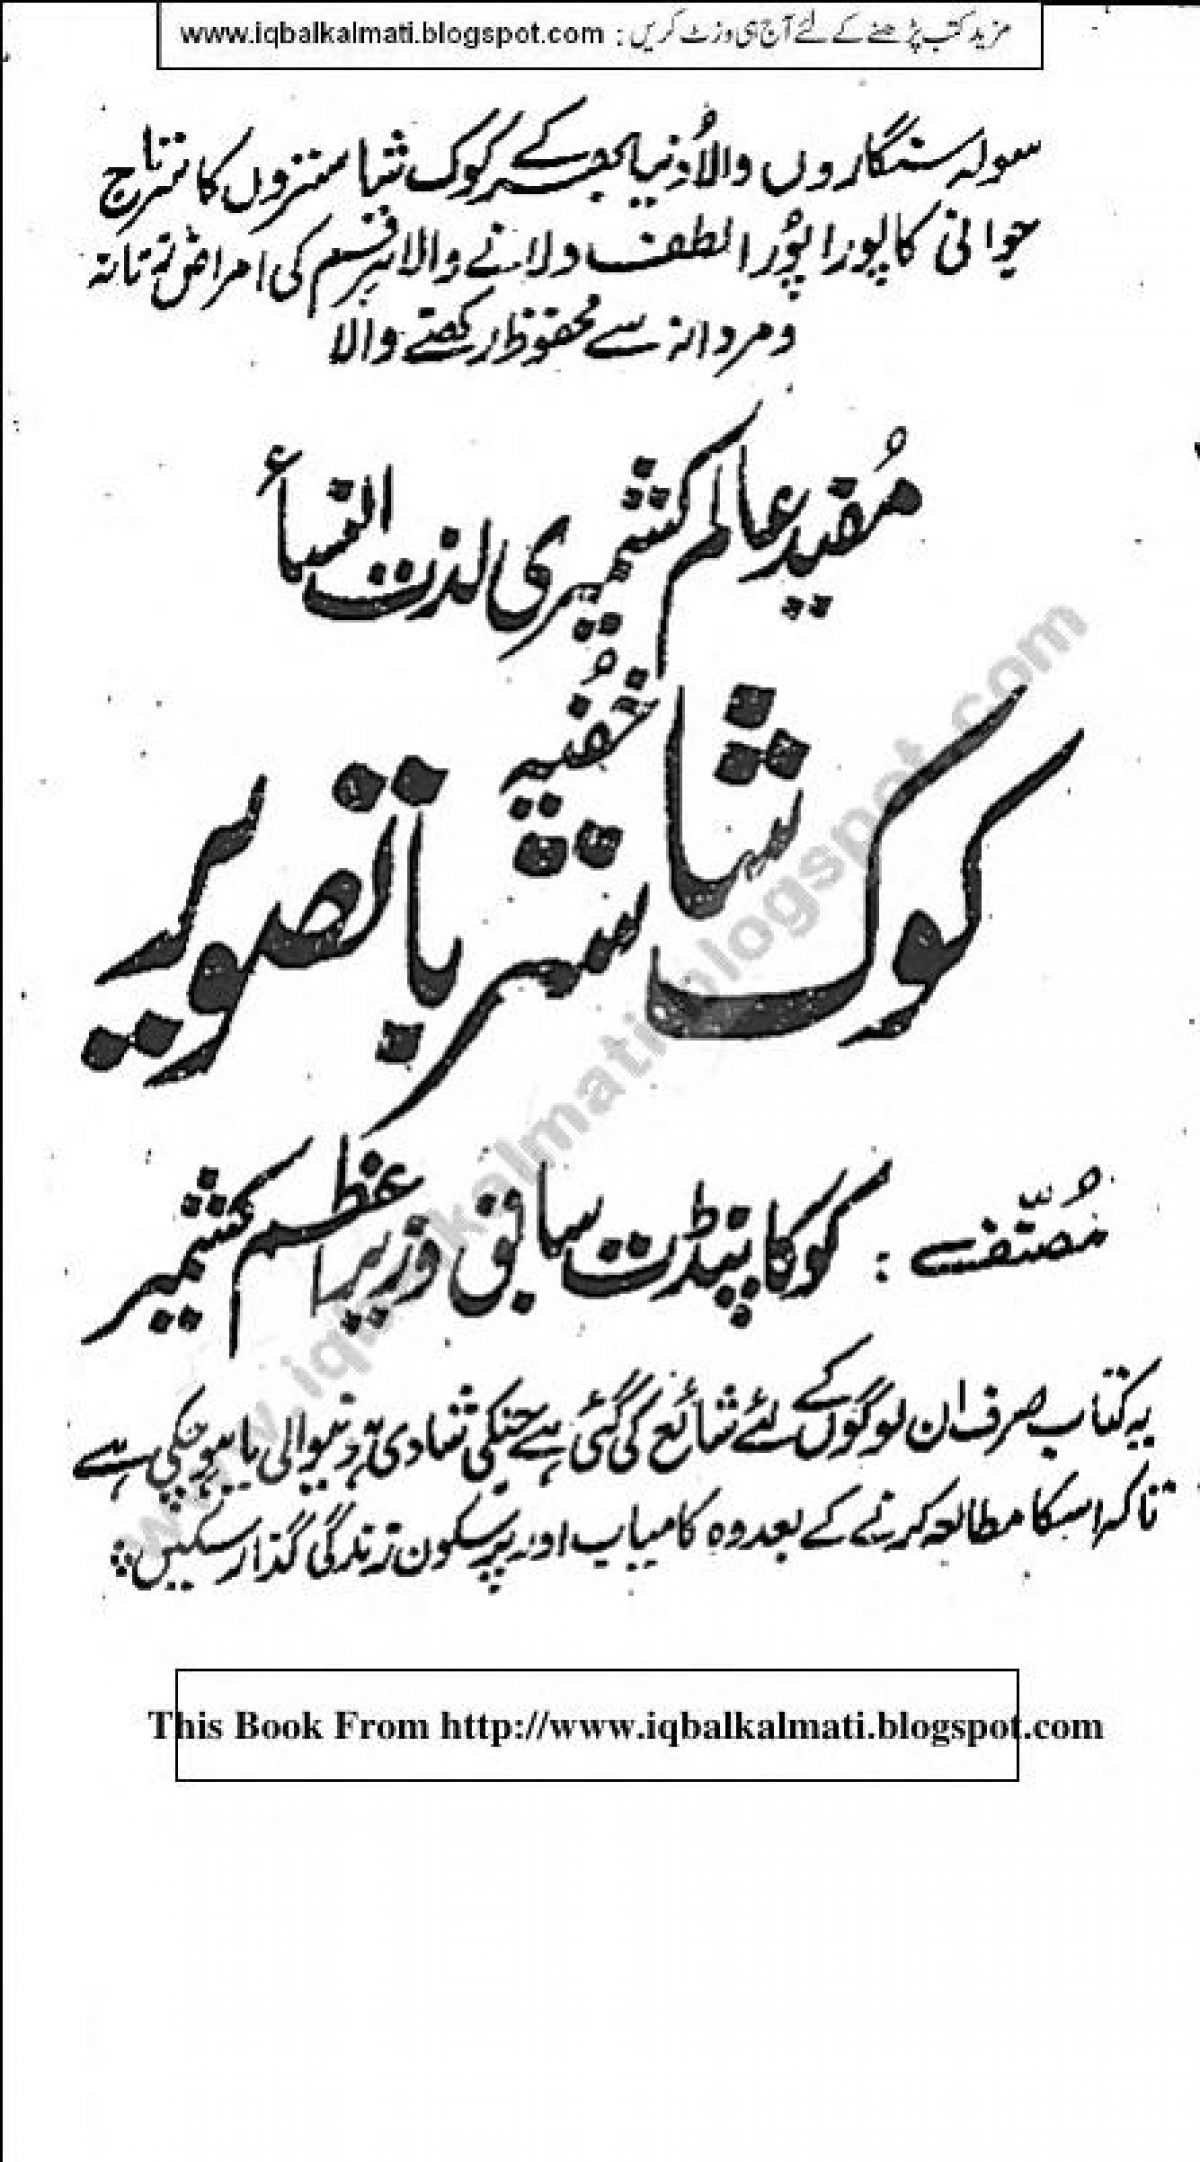 www.iqbalkalmati.blogspot.com : مزید کتب پڑھنے کے لئے آج ہی وزٹ کریں
سولہ سنگاروں والا دُنیا بھر کے کوک شاستروں کا سرتاج
جوانی کا پورا پُورا لطف دلانے والا ہر قسم کی امراض زنانہ
و مردانہ سے محفوظ رکھنے والا
مُفید عالم کشمیری لذت النسأ
خُفیہ
کوک شاستر باتصویر
مُصنّف : کوکا پنڈت سابق وزیر اعظم کشمیر
یہ کتاب صرف ان لوگوں کے لئے شائع کی گئی ہے جنکی شادی ہونیوالی یا ہو چکی ہے
تاکہ اسکا مطالعہ کرنے کے بعد وہ کامیاب اور پرسکون زندگی گذار سکیں
www.iqbalkalmati.blogspot.com
This Book From http://www.iqbalkalmati.blogspot.com